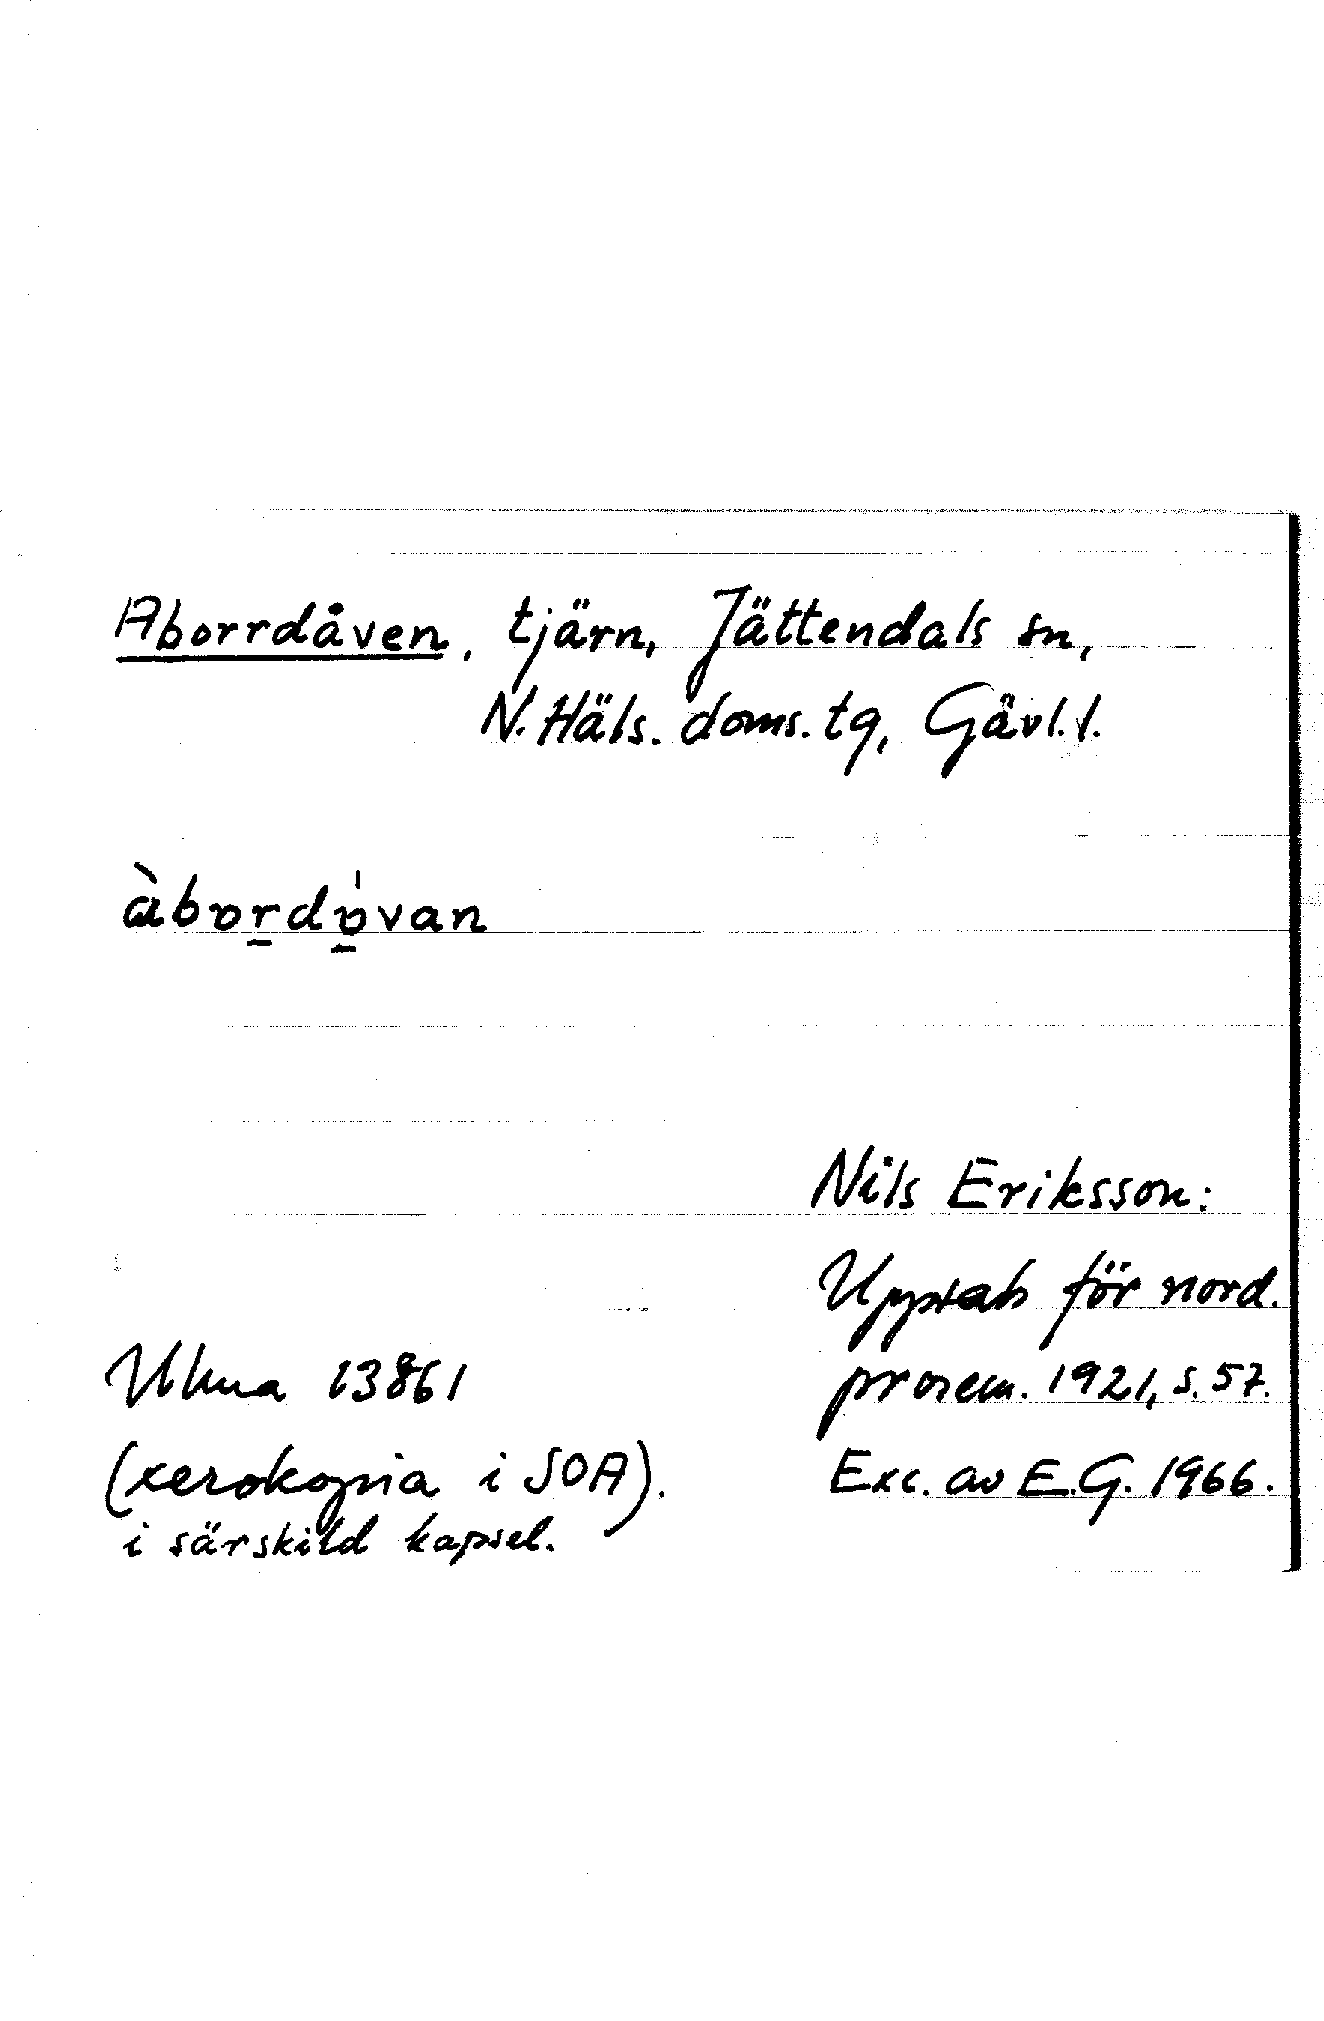 Aborrdåven, tjärn, Jättendals sn,
N. Häls. doms. tg, Gävl. l.
àbord͟o̱van
Nils Eriksson:
Uppsats för nord.
prosem. 1921, s. 57.
Ulma 13861
(xerokopia i SOA).
i särskild kapsel.
Exc. av E.G. 1966.